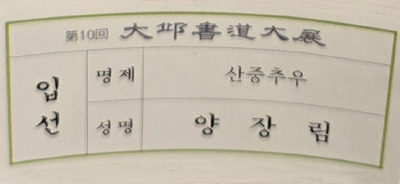 第10回 大邱書道大展
입선
명제 산중추우
성명 양장림